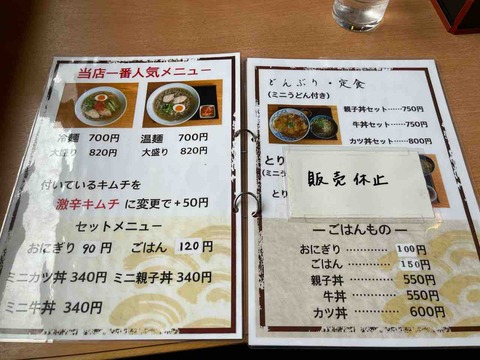 当店一番人気メニュー
冷麺 700円 温麺 700円
大盛り 820円 大盛り 820円
付いているキムチを
激辛キムチ に変更で+50円
セットメニュー
おにぎり 90円 ごはん 120円
ミニカツ丼 340円 ミニ親子丼 340円
ミニ牛丼 340円
どんぶり・定食
(ミニうどん付き)
親子丼セット……750円
牛丼セット……750円
カツ丼セット……800円
とり
(ミニ
とり
販売休止
―ごはんもの―
おにぎり ………… 100円
ごはん ………… 150円
親子丼 ………… 550円
牛丼 ………… 550円
カツ丼 ………… 600円